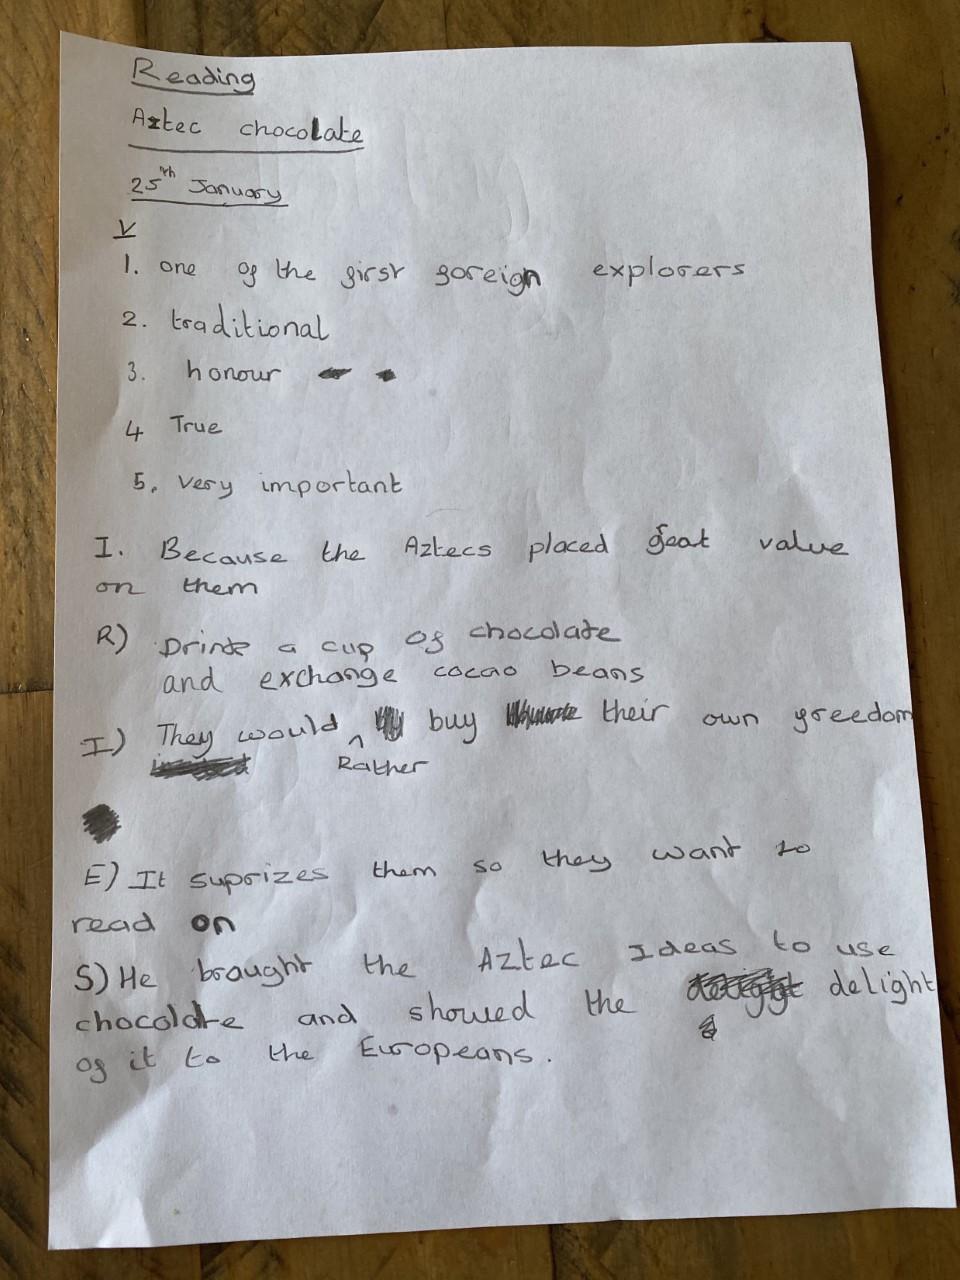 Reading
Aztec chocolate
25th January
V
1. one of the first foreign explorers
2. traditional
3. honour
4 True
5. very important
I. Because the Aztecs placed geat value
on them
R) Drink a cup of chocolate
and exchange cocao beans
I) They would buy their own freedom
Rather
E) It suprizes them so they want to
read on
S) He braught the Aztec Ideas to use
chocolate and showed the delight
of it to the Europeans.